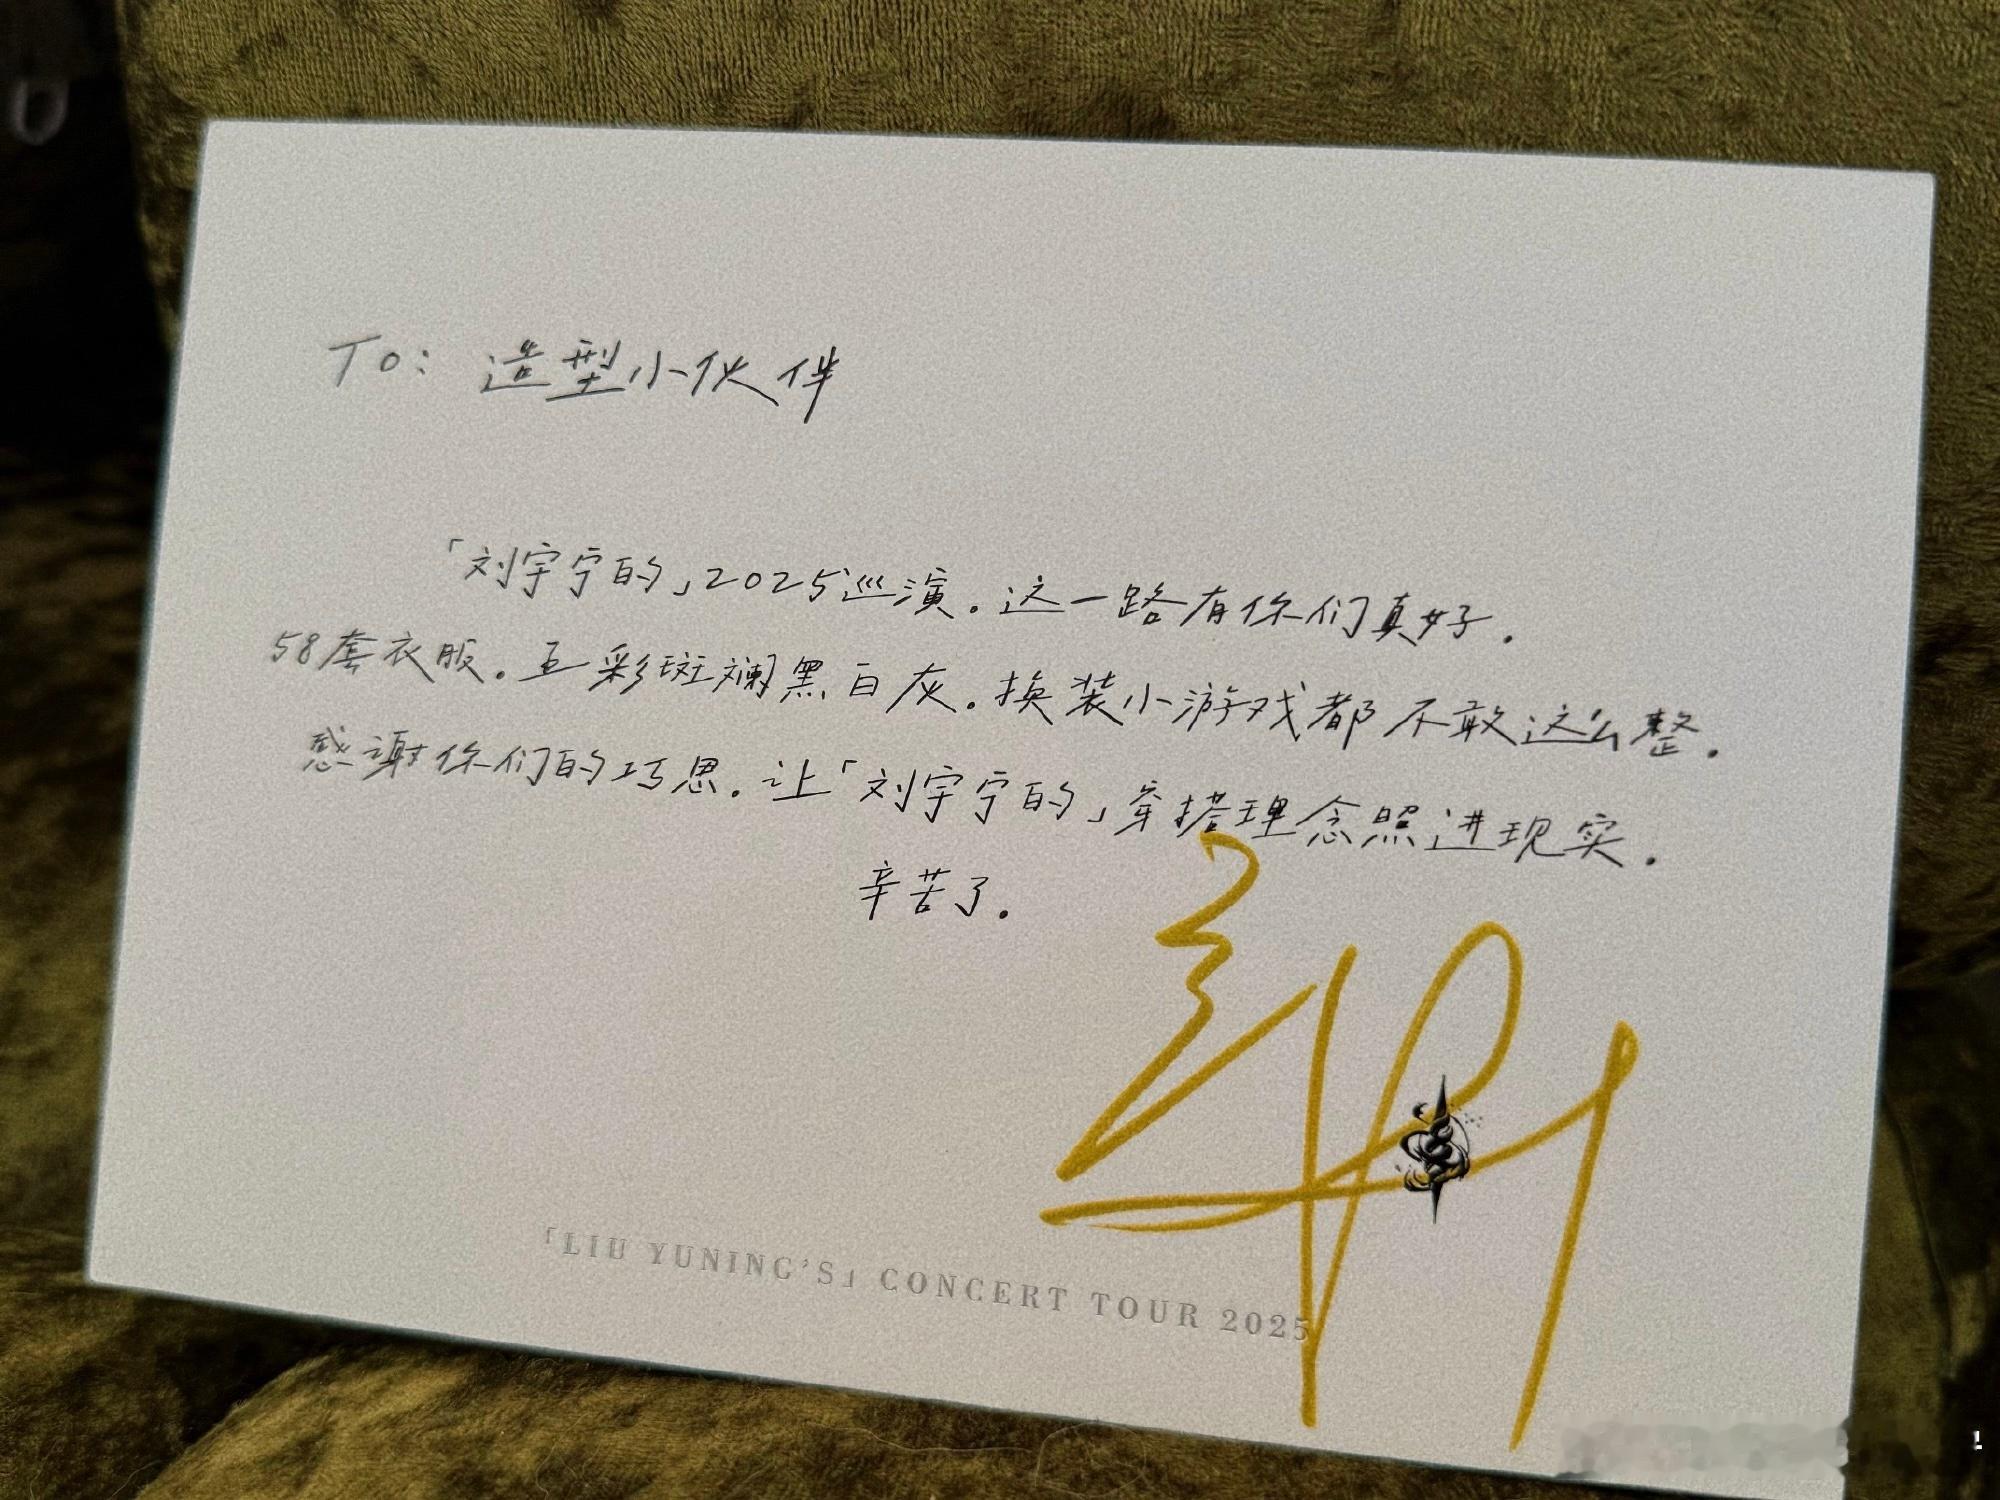 To: 造型小伙伴
「刘宇宁的」2025巡演.这一路有你们真好.
58套衣服.五彩斑斓黑白灰.换装小游戏都不敢这么整.
感谢你们的巧思.让「刘宇宁的」穿搭理念照进现实.
辛苦了.
「LIU YUNING'S」 CONCERT TOUR 2025